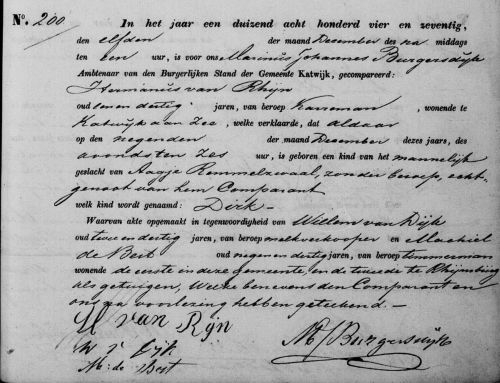 No. 200
In het jaar een duizend acht honderd vier en zeventig,
den elfden der maand December des na middags
ten een uur, is voor ons Marinus Johannes Burgersdijk
Ambtenaar van den Burgerlijken Stand der Gemeente Katwijk, gecompareerd:
Hermanus van Rhijn
oud een en dertig jaren, van beroep Karreman, wonende te
Katwijk aan Zee, welke verklaarde, dat aldaar
op den negenden der maand December dezes jaars, des
avonds ten zes uur, is geboren een kind van het mannelijk
geslacht van Aagje Remmelzwaal, zonder beroep, echt-
genoot van hem Comparant
welk kind wordt genaamd: Dirk
Waarvan akte opgemaakt in tegenwoordigheid van Willem van Dijk
oud twee en dertig jaren, van beroep melkverkooper en Machiel
de Best oud negen en dertig jaren, van beroep timmerman
wonende de eerste in deze gemeente, en de tweede te Rhijnsburg
als getuigen, welke benevens den Comparant en
ons na voorlezing hebben geteekend.
H van Rijn
W v Dijk
M: de Best
MJBurgersdijk